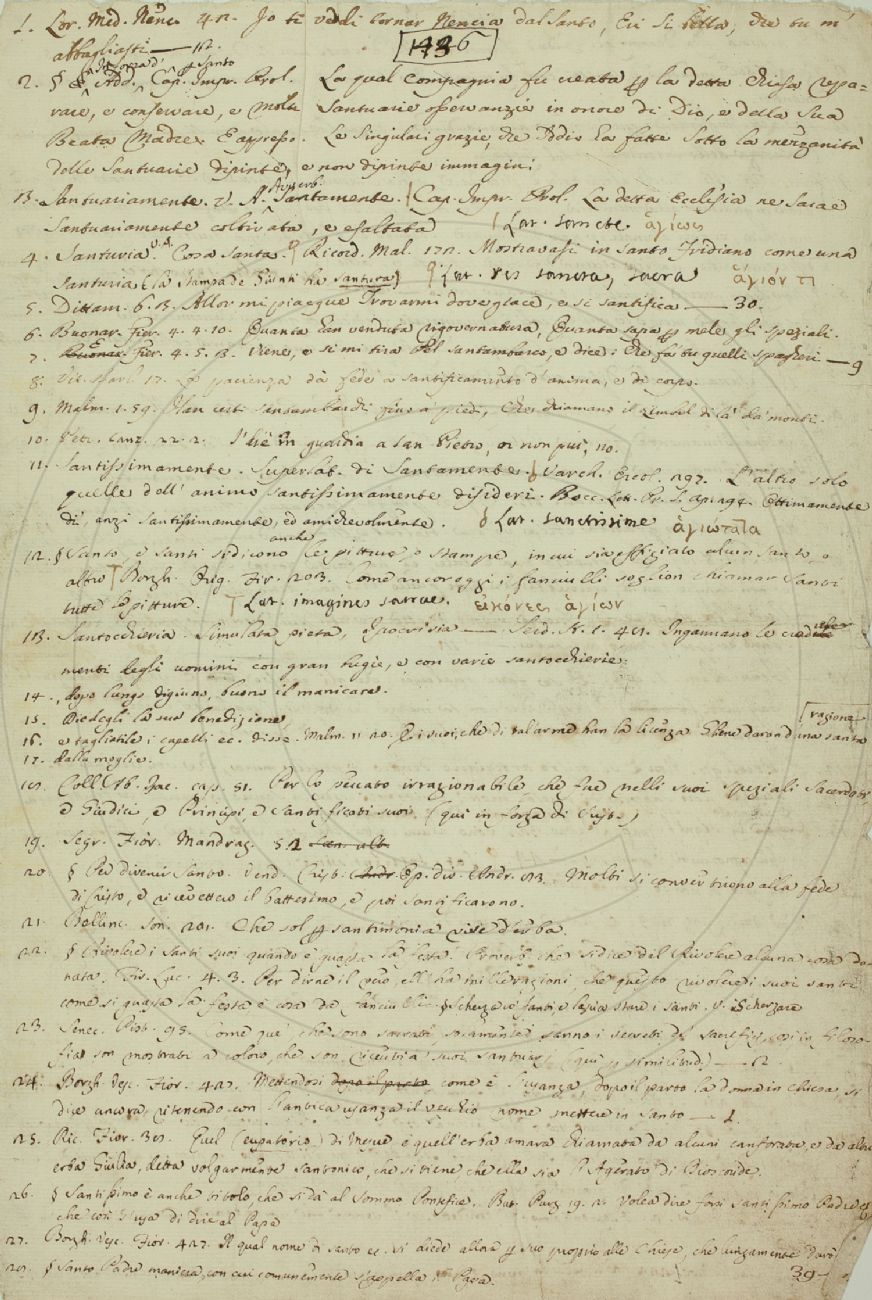 1. Lor. Med. Nenc. 42. Io ti vedi tornar Nencia dal Santo, Eri sì bella, che tu m'
abbagliasti — 12.
1436
2. § Add. Cap. Impr. Prol. La qual compagnia fu creata p la detta chiesa repa=
rare, e conservare, e molte Santuarie osservanzie in onore di Dio, e della Sua
Beata Madre. E appresso. Le singulari grazie, che Iddio ha fatte sotto la mezzanità
delle Santuarie dipinte, e non dipinte immagini
13. Santuariamente. v. A. Avverb. Santamente. Cap. Impr. Prol. La detta Ecclesia ne sarae
Santuariamente coltivata, e esaltata Lat. sancte ἁγίως
4. Santuria. v. A. Cosa santa. Ricord. Mal. 172. Mostravasi in santo Fridiano come una
santuria (la stampa de Giunti ha santura) Lat. res sancta, sacra ἅγιόν τι
5. Dittam. 6. 13. Allor mi piacque trovarmi dove giace, e si santifica — 30.
6. Buonar. Fier. 4. 4. 10. Quanta han venduta rigovernatura, Quanta sapa p mele gli speziali.
7. E Fier. 4. 5. 3. Viene, e si mi tira pel santambarco, e dice: Che fa' tu quelli spagheri — 9
8. 17. La pacienza dà fede a santificamento d'anima, e di corpo.
9. Malm. 1. 59. Han certi santambarchi fino a' piedi, Che chiamano il zimbel di là da' monti.
10. Petr. Canz. 22. 2. I' die' in guardia a San Pietro, or non più, no.
11. Santissimamente. Superlat. di Santamente. Varch. Ercol. 297. L'altro solo
quelle dell'animo santissimamente disideri. Bocc. Lett. Pr. S. Ap. 294. Ottimamente
di', anzi santissimamente, ed amichevolmente. Lat. sanctissime ἁγιώτατα
12. § Santo, e Santi si dicono anche le pitture, o stampe, in cui sia effigiato alcun santo, o
altro Borgh. Orig. Fir. 203. Come ancor oggi i fanciulli soglion chiamar Santi
tutte le pitture. Lat. imagines sacrae. εἰκόνες ἁγίων
13. Santoccheria. Simulata pietà, Ipocrisia — Ingannano le
menti degli uomini con gran bugie, e con varie santoccherie.
14. , dopo lungo digiuno, buono il manicare.
15. Diedegli la sua benedizione
16. e tagliatile i capelli ec. disse. Malm. 11. 20. E i suoi, che di tal'arme han la licenza Ebene darond'una santa ragione
17. dalla moglie.
18. Coll. Ab. Isac. cap. 51. Per lo peccato irrazionabile, che fue nelli suoi speziali Sacerdoti,
e Giudici, e Principi, e santificati suoi. (qui in forza di Sust.)
19. Segr. Fior. Mandrag. 5. 2
20. § Per divenir Santo. Vend. Crist. Op. div. Andr. 93. Molti si convertirono alla fede
di Cristo, e ricevettero il battesimo, e poi santificarono.
21. Bellinc. son. 201. Che sol p santimonia vive d'erba.
22. § Rivolere i Santi suoi quando è guasta la festa. Proverb. che si dice del Rivolere alcuna cosa do=
nata. Fir. Luc. 4. 3. Per dirne il vero, ell'ha mille ragioni, che questo rivolere i suoi santi
come si guasta la festa è cosa da fanciulli. § Scherza co' fanti, e lascia stare i santi. v. Scherzare
23. Senec. Pist. 95. Come que' che sono sagrati, solamente sanno i secreti del sacrifizi, così in filoso=
fia son mostrati a coloro, che son ricevuti a' suoi santuari (qui p similitud.) — 12
24. Borgh. Vesc. Fior. 427. Mettendosi dopo il parto come è l'usanza, dopo il parto la donna in chiesa, si
dice ancora, ritenendo con l'antica usanza il vecchio nome mettere in santo — 1.
25. Ric. Fior. 39. Quel (eupatorio) di Mesue è quell'erba amara chiamata da alcuni canforata, e da altri
erba Giulia, detta volgarmente santonico, che si tiene che ella sia l'Agerato di Dioscoride.
26. § Santissimo è anche titolo, che si dà al Sommo Pontefice. But. Purg. 19. 2. Volea dire forsi santissimo Padre,
che così s'usa di dire al Papa
27. Borgh. Vesc. Fior. 427. Il qual nome di santo ec. si diede allora p suo proprio alle Chiese, che lungamente durò
28. § Santo Padre maniera, con cui comunemente s'appella il Papa.
39